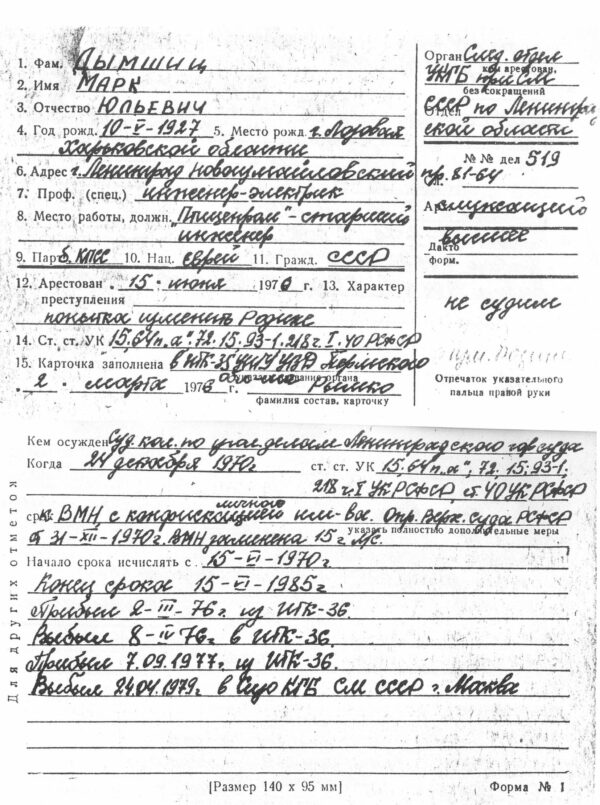 1. Фам. Дымшиц
2. Имя Марк
3. Отчество Юльевич
4. Год рожд. 10-V-1927 5. Место рожд. г. Лозовая
Харьковской области
6. Адрес г. Ленинград Новоизмайловский
7. Проф. (спец.) инженер-электрик
8. Место работы, должн. "Птицепром" - старший
инженер
9. Парт. б. КПСС 10. Нац. еврей 11. Гражд. СССР
12. Арестован „15" июня 1970 г. 13. Характер
преступления
попытка измены Родине
14. Ст. ст. УК 15,64п."а", 72. 15. 93-1. 218 г. I. 40 РСФСР
15. Карточка заполнена в ИТК-35 УИТУ УВД Пермского
„2" марта 1976 г. области Рытко
фамилия состав. карточку
Орган След. отдел
кем арестован,
УКГБ при СМ
без сокращений
СССР по Ленинград
Отдел
ской области
№ № дел 519
пр. 81-64
Ар. служащего
высшее
Дакто
форм.
не судим
Отпечаток указательного
пальца правой руки
Кем осужден Суд. кол. по угол. делам Ленинградского горсуда
Когда 24 декабря 1970г ст. ст. УК 15.64п."а", 72. 15. 93-1.
218 г. I УК РСФСР, ст. 40 УК РСФСР
личного
срок ВМН с конфискацией им-ва. Опр. Верх. Суда РСФСР
указать полностью дополнительные меры
от 31-XII-1970г. ВМН заменена 15 г. л/с.
Начало срока исчислять с 15-VI-1970г.
Конец срока 15-VI-1985г
Прибыл 2-III-76г. из ИТК-36.
Выбыл 8-IV 76г. в ИТК-36.
Прибыл 7.09.1977г. из ИТК-36.
Выбыл 24.04.1979г. в Сизо КГБ СМ СССР г. Москва
Для других отметок
[Размер 140 x 95 мм] Форма № 1